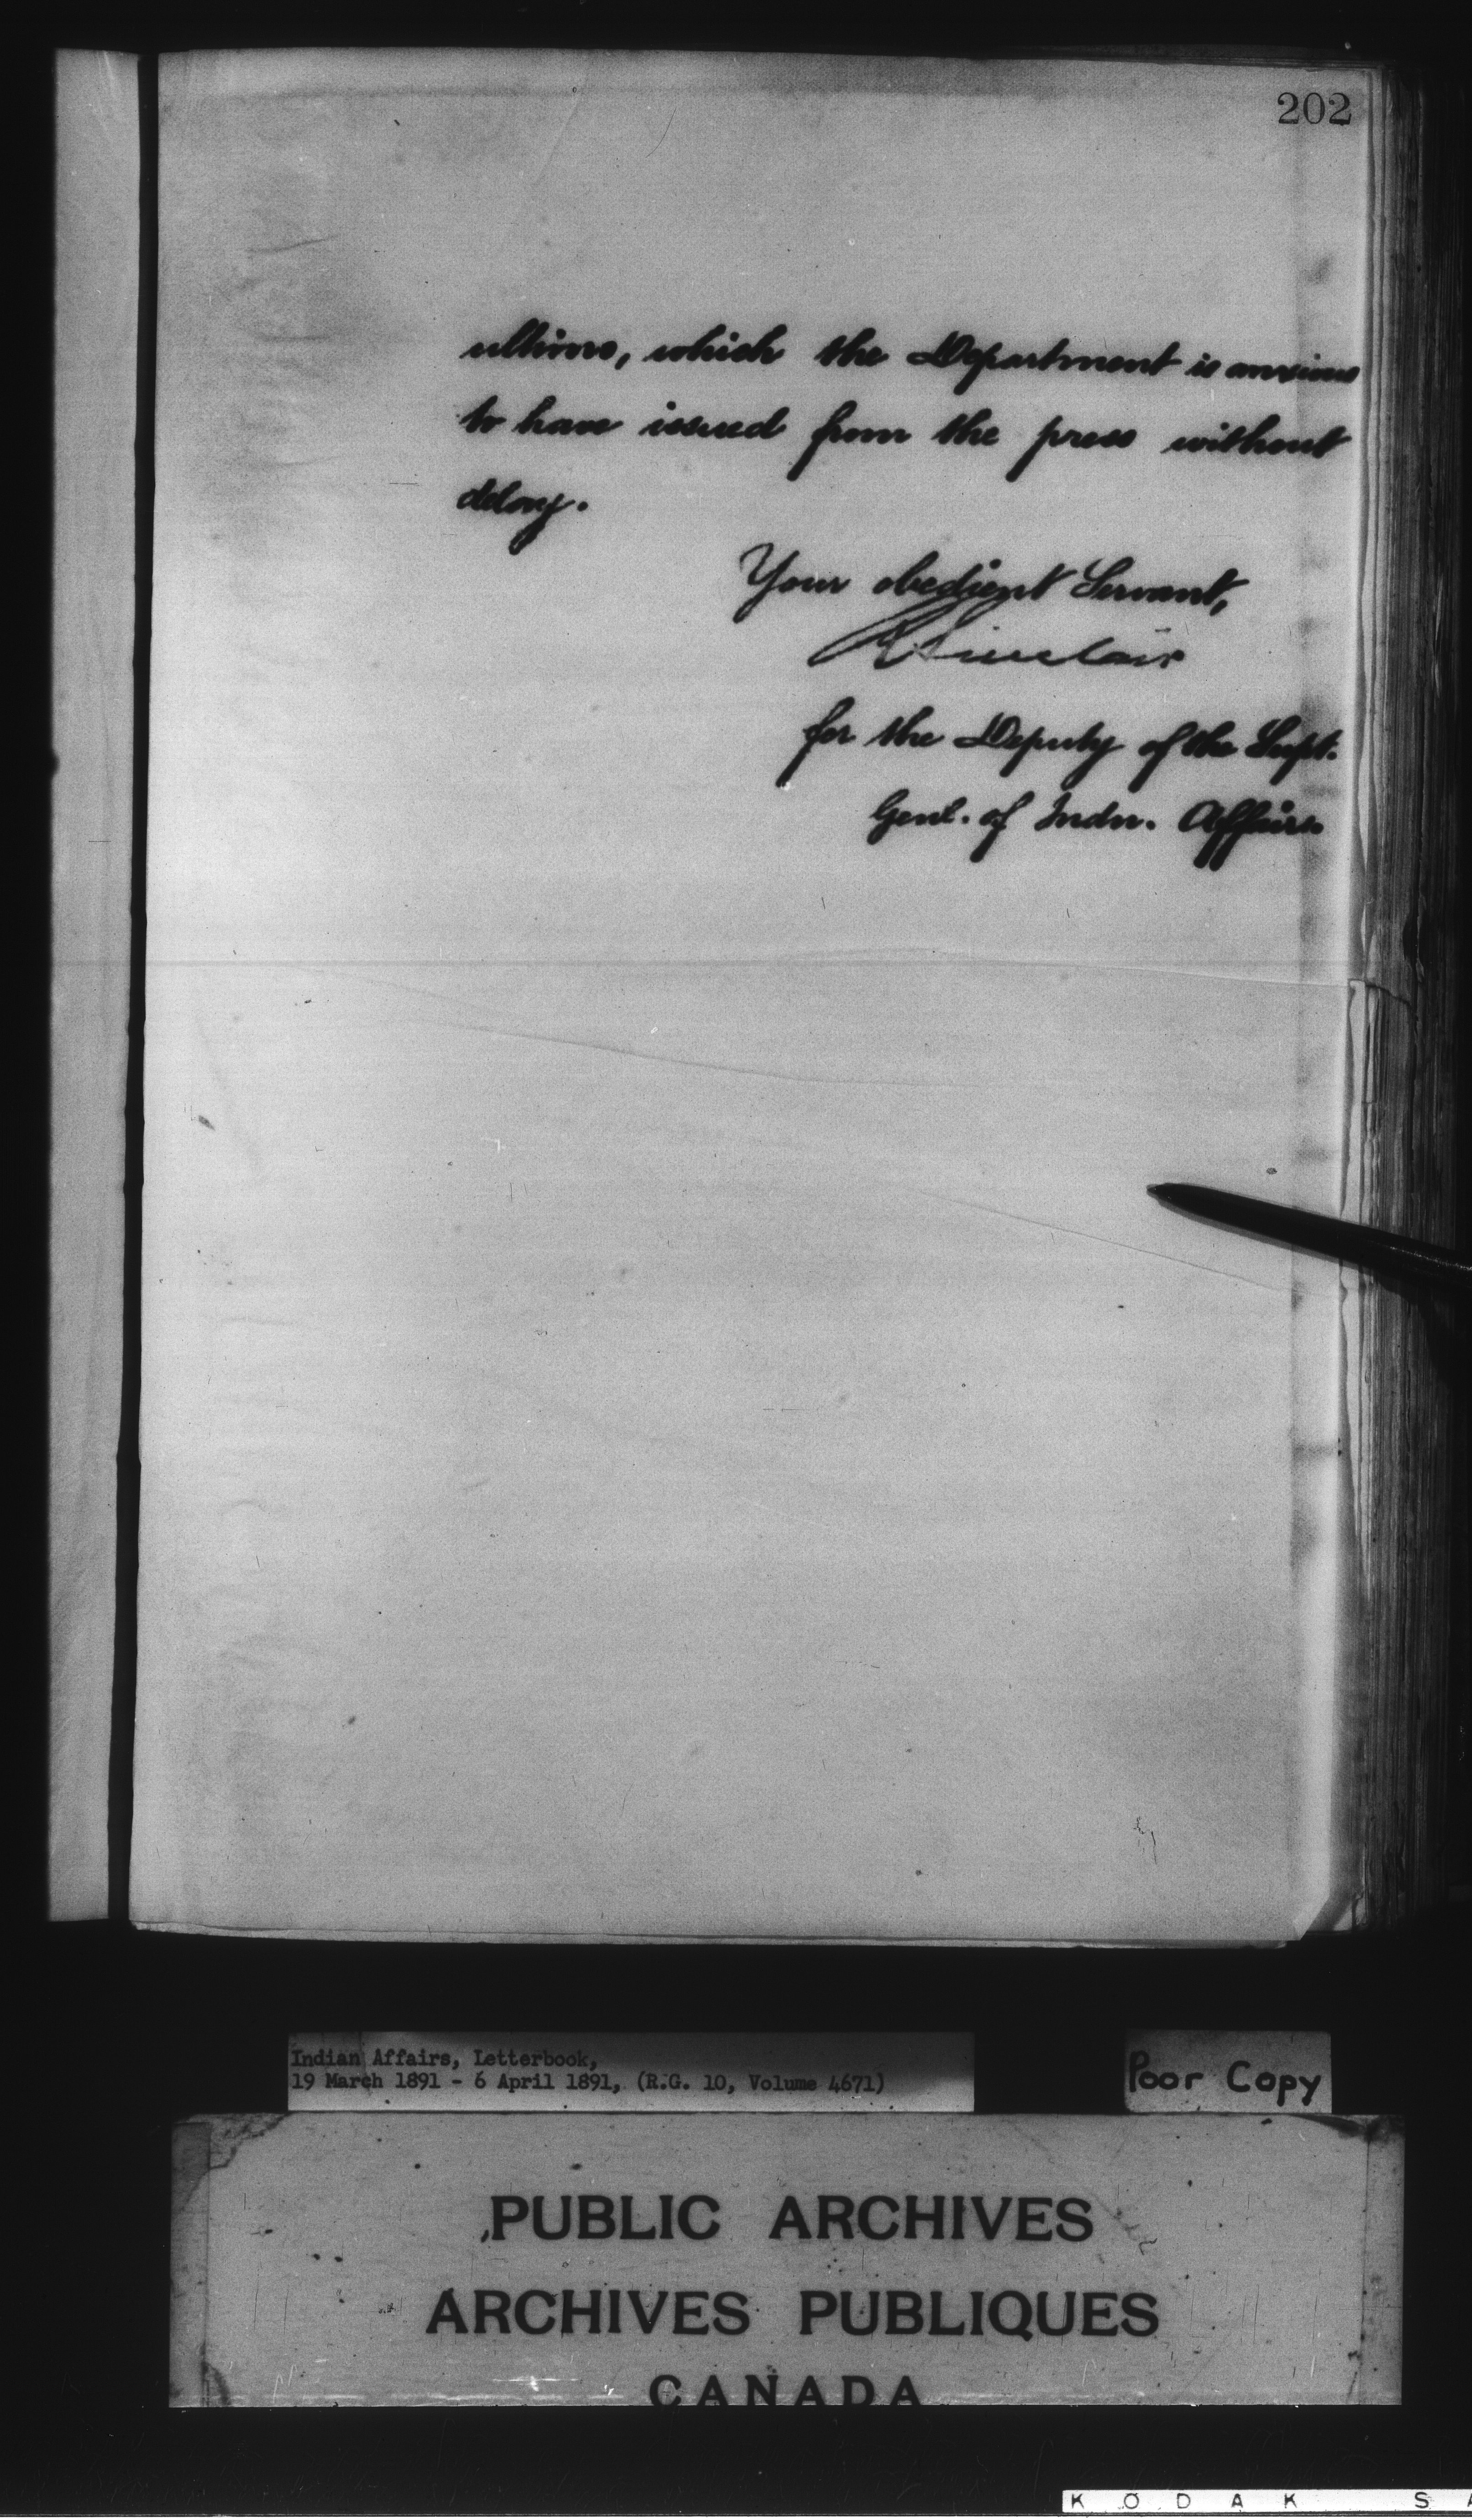 202
ultimo, which the Department is anxious
to have issued from the press without
delay.
Your obedient Servant,
R Sinclair
for the Deputy of the Supt.
Genl. of Indn. Affairs.
Indian Affairs, Letterbook,
19 March 1891 - 6 April 1891, (R.G. 10, Volume 4671)
Poor Copy
PUBLIC ARCHIVES
ARCHIVES PUBLIQUES
CANADA
KODAK S